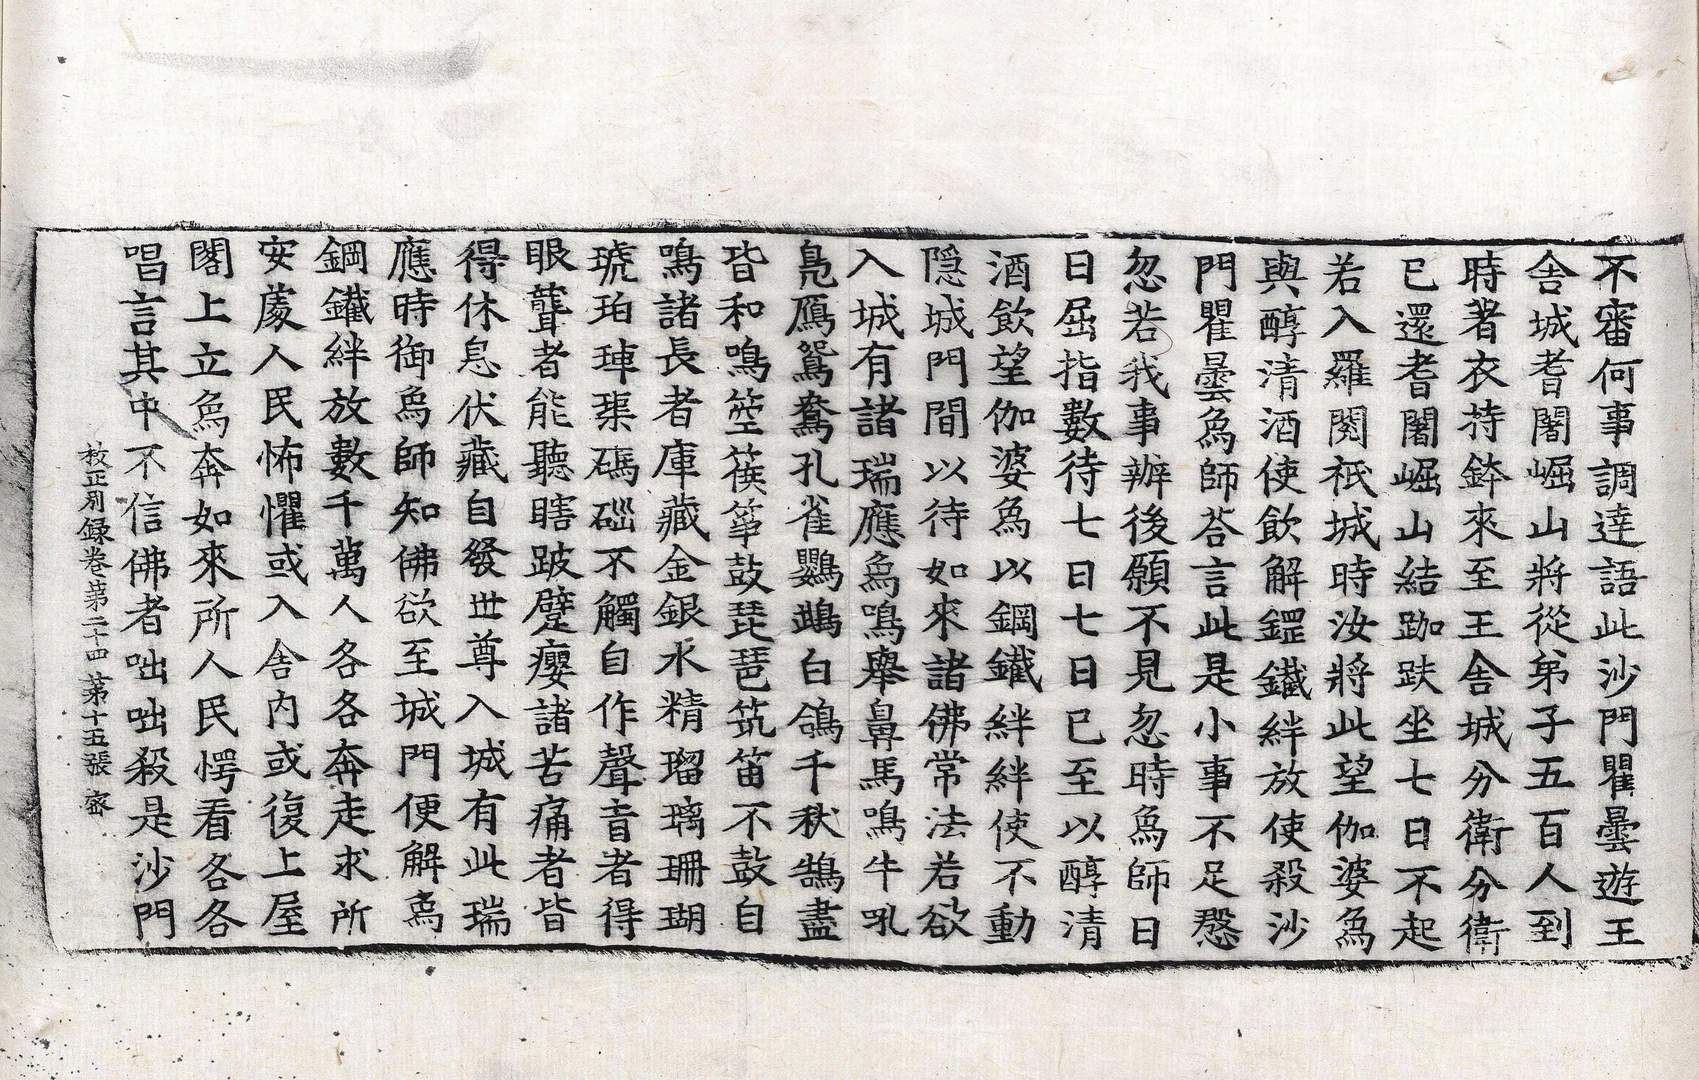 不審何事調達語此沙門瞿曇遊王
舍城耆闍崛山將從弟子五百人到
時著衣持鉢來至王舍城分衛分衛
已還耆闍崛山結跏趺坐七日不起
若入羅閱祇城時汝將此望伽婆爲
與醇清酒使飲解鋥鐵絆放使殺沙
門瞿曇爲師荅言此是小事不足慇
忽若我事辦後願不見忽時爲師日
日屈指數待七日七日已至以醇清
酒飲望伽婆爲以鋼鐵絆絆使不動
隱城門間以待如來諸佛常法若欲
入城有諸瑞應爲鳴舉鼻馬鳴牛吼
鳧鴈鴛鴦孔雀鸚鵡白鴿千秋鵠盡
皆和鳴箜篌箏鼓琵琶筑笛不鼓自
鳴諸長者庫藏金銀水精瑠璃珊瑚
琥珀硨磲碼碯不觸自作聲盲者得
眼聾者能聽瞎跛躄癭諸苦痛者皆
得休息伏藏自發世尊入城有此瑞
應時御爲師知佛欲至城門便解爲
鋼鐵絆放數千萬人各各奔走求所
安處人民怖懼或入舍內或復上屋
閣上立爲奔如來所人民愕看各各
唱言其中不信佛者咄咄殺是沙門
校正別錄卷第二十四 第十五張 密